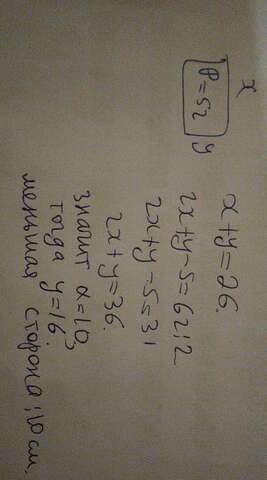 x
P=52 y
x+y=26.
2x+y-5=62:2
2x+y-5=31
2x+y=36.
значит x=10,
тогда y=16
меньшая сторона 10 см.